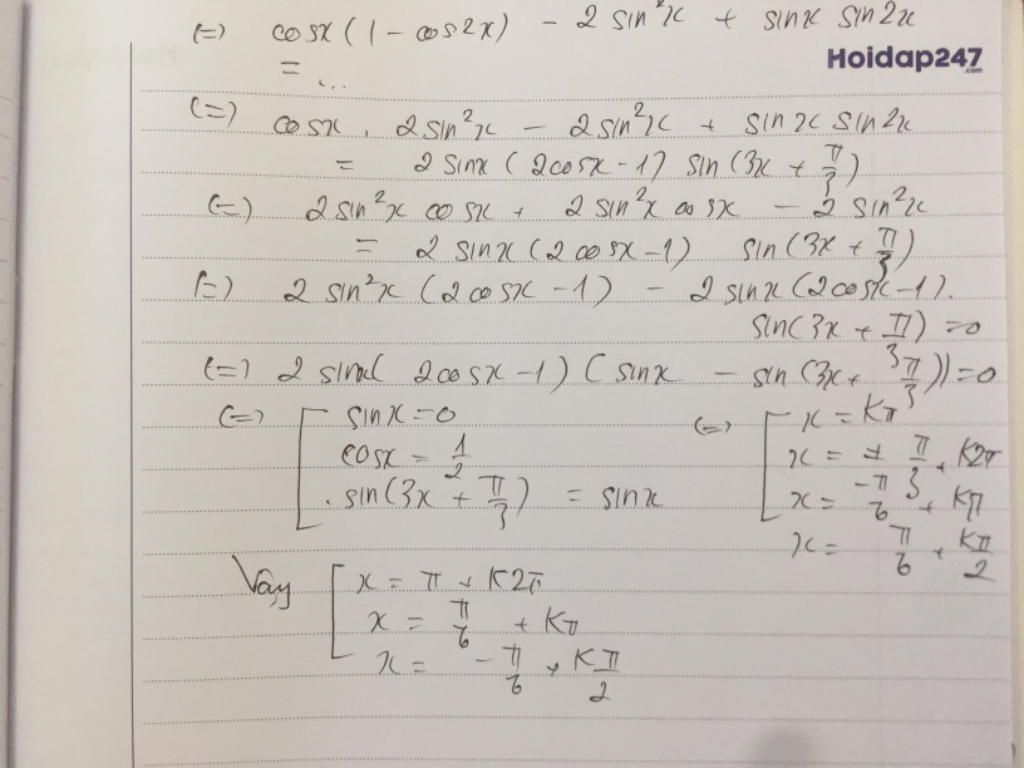 (=) cosx (1 - cos2x) - 2 sin²x + sinx sin2x
Hoidap247
.com
= ...
(=) cosx . 2 sin²x - 2 sin²x + sinx sin2x
= 2 sinx (2cosx - 1) sin (3x + π/3)
(=) 2 sin²x cosx + 2 sin²x cosx - 2 sin²x
= 2 sinx (2cosx - 1) sin (3x + π/3)
(=) 2 sin²x (2cosx - 1) - 2 sinx (2cosx - 1).
sin(3x + π/3) = 0
(=) 2 sinx( 2cosx - 1) ( sinx - sin (3x + π/3)) = 0
(=) [ sinx = 0 (=) [ x = Kπ
cosx = 1/2 x = ± π/3 + K2π
. sin(3x + π/3) = sinx x = -π/6 + Kπ
x = π/6 + Kπ/2
Vậy [ x = π + K2π
x = π/6 + Kπ
x = -π/6 + Kπ/2